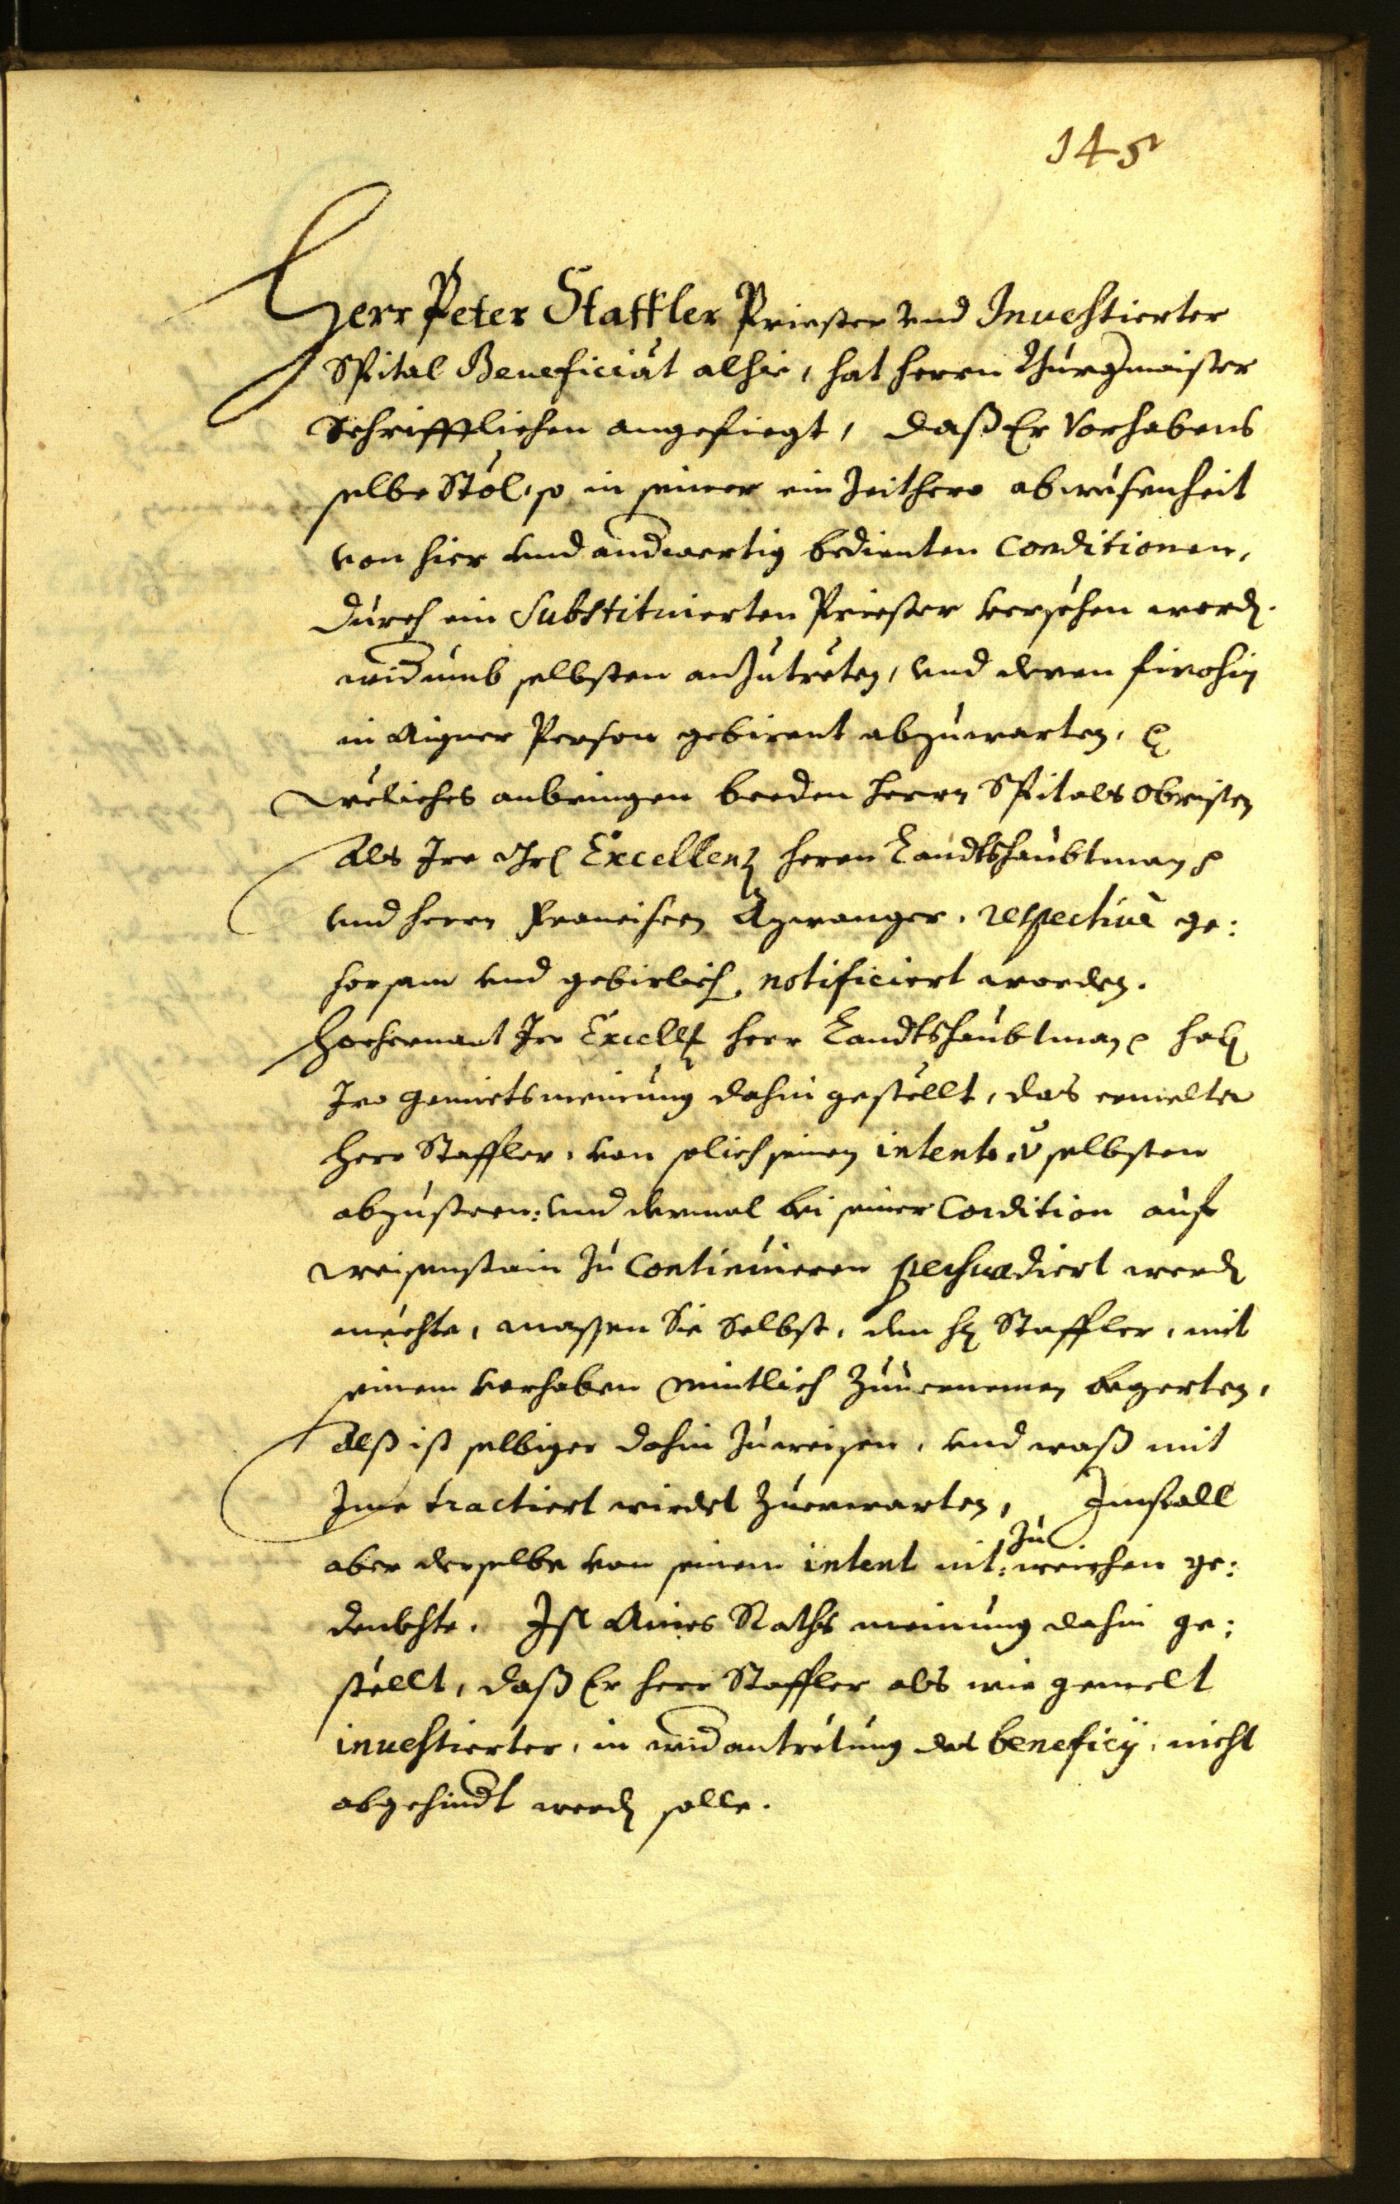 145
Herr Peter Staffler Priester und Inuestierter
Spital Beneficiat alhie, hat herrn Burgmaister
Schrifftlichen angefiegt, daß Er Vorhabens
selbe Stöl, so in seiner ein Zeithero abwesenheit
von hier und anderwertig bedienten Conditionen,
durch ein Substituierten Priester versehen word.
widerumb selbsten anzutreten, und deren firohin
in Aigner Person gebirent abzuwarten,
Weliches anbringen beeden herrn Spitals Obristen
Als Ire Excellenz herrn Landtshaubtman
und herrn Francisen Azwanger, respectiuè ge:
horsam und gebirlich, notificiert worden.
Hochernant Ire Excell herr Landtshaubtman hab
Ire Gemietsmeinung dahin gestellt, das ermelter
Herr Staffler, von solich seinen intento selbsten
abzusteen: und dermal bei seiner Condition auf
Weisenstain zu Continuieren persuadiert werd
mechte, massen Sie Selbst, den H Staffler, mit
seinem vorhaben mintlich Zuuernemen begerten,
Alß ist selbiger dahin zuweisen, und waß mit
Ime tractiert wirdet Zuerwarten, Imfall
aber derselbe von seinem intent nit: zu weichen ge:
denckhte. Ist Aines Raths meinung dahin ge:
stellt, daß Er herr Staffler als wie gemelt
inuestierter, in widerantretung des beneficij, nicht
abgehindert werd solle.